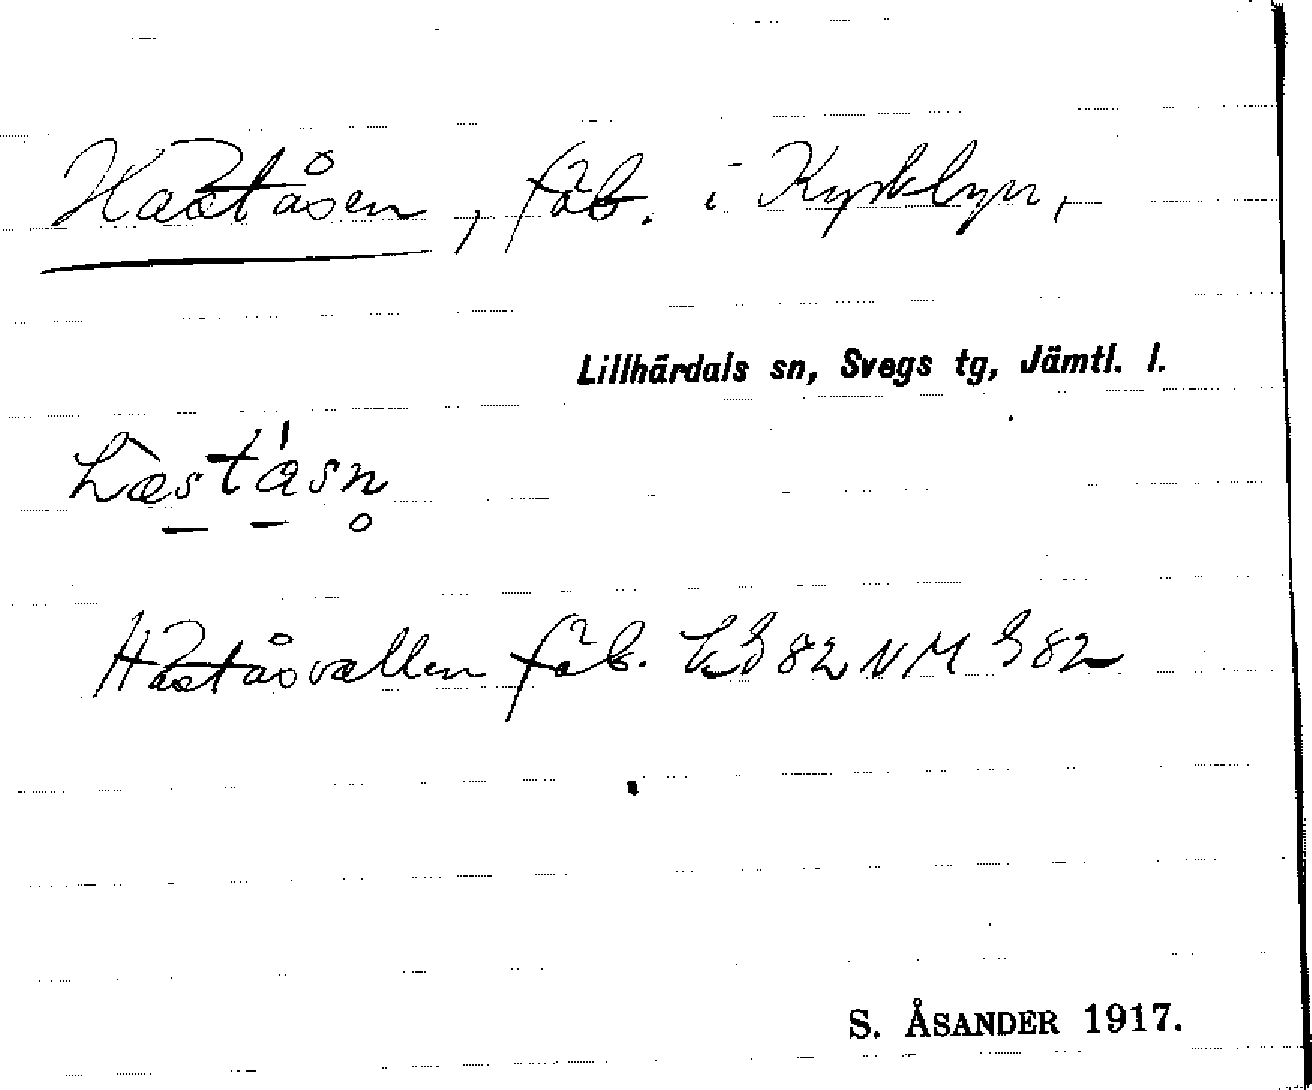 Häståsen, fäb. i Kyrkbyn,
Lillhärdals sn, Svegs tg, Jämtl. l.
Häståsvallen fäb. 82 NM 82
S. ÅSANDER 1917.